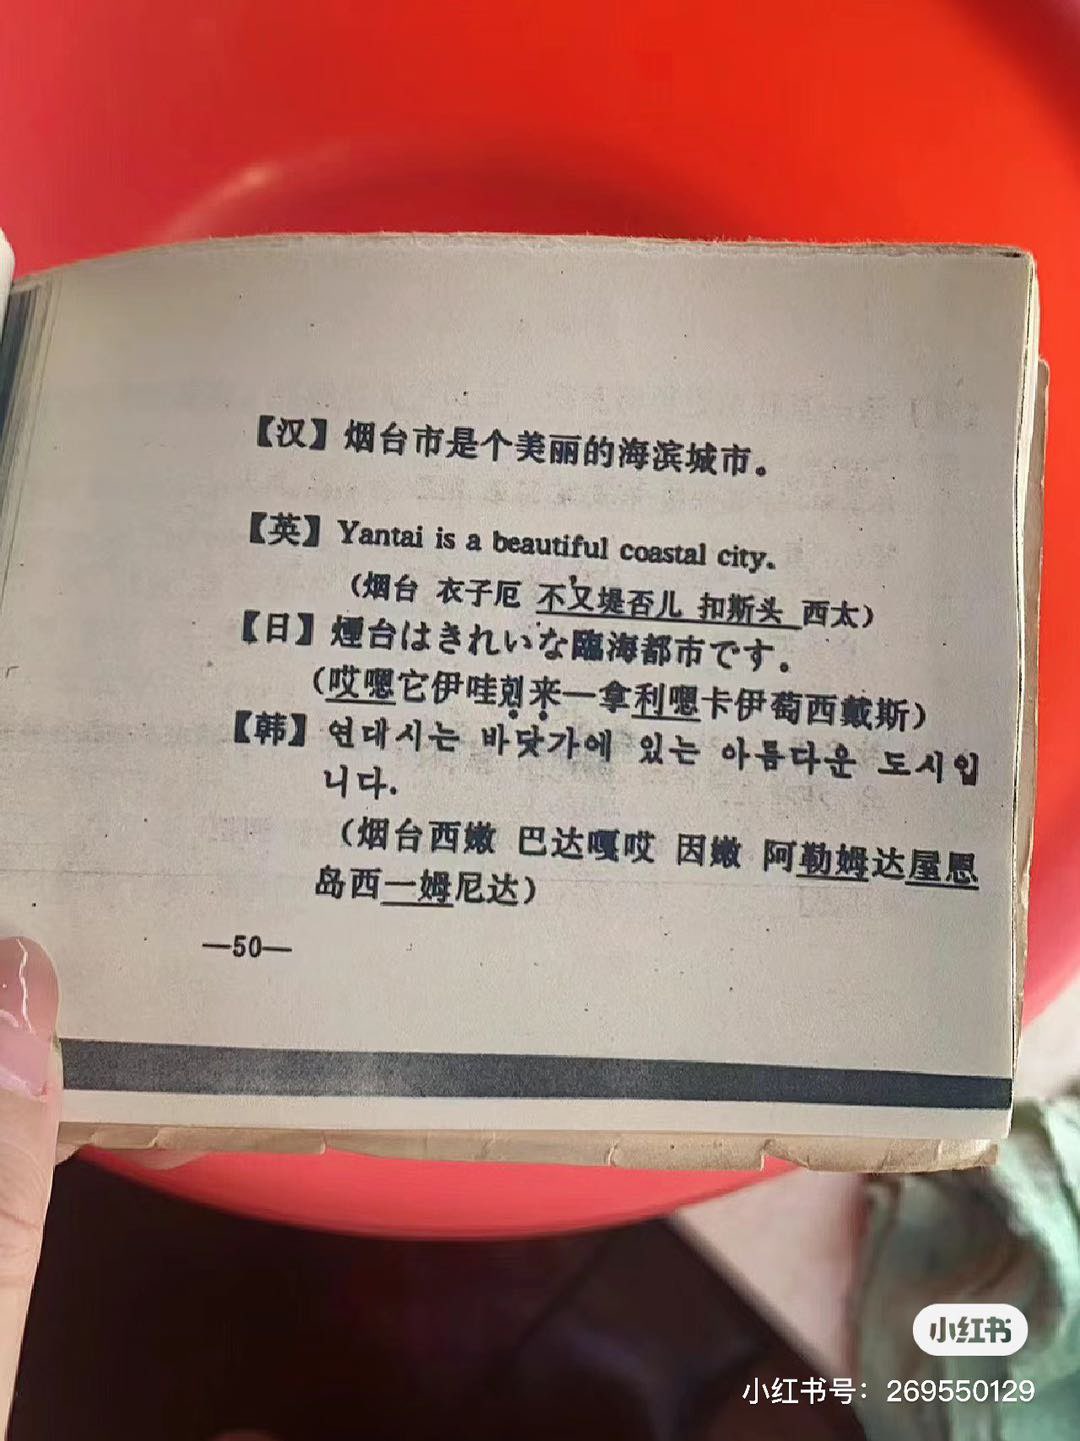 【汉】烟台市是个美丽的海滨城市。
【英】Yantai is a beautiful coastal city.
（烟台 衣子厄 不又堤否儿 扣斯头 西太）
【日】煙台はきれいな臨海都市です。
（哎嗯它伊哇剋来一拿利嗯卡伊萄西戴斯）
【韩】연대시는 바닷가에 있는 아름다운 도시입
니다.
（烟台西嫩 巴达嘎哎 因嫩 阿勒姆达屋恩
岛西一姆尼达）
—50—
小红书
小红书号：269550129